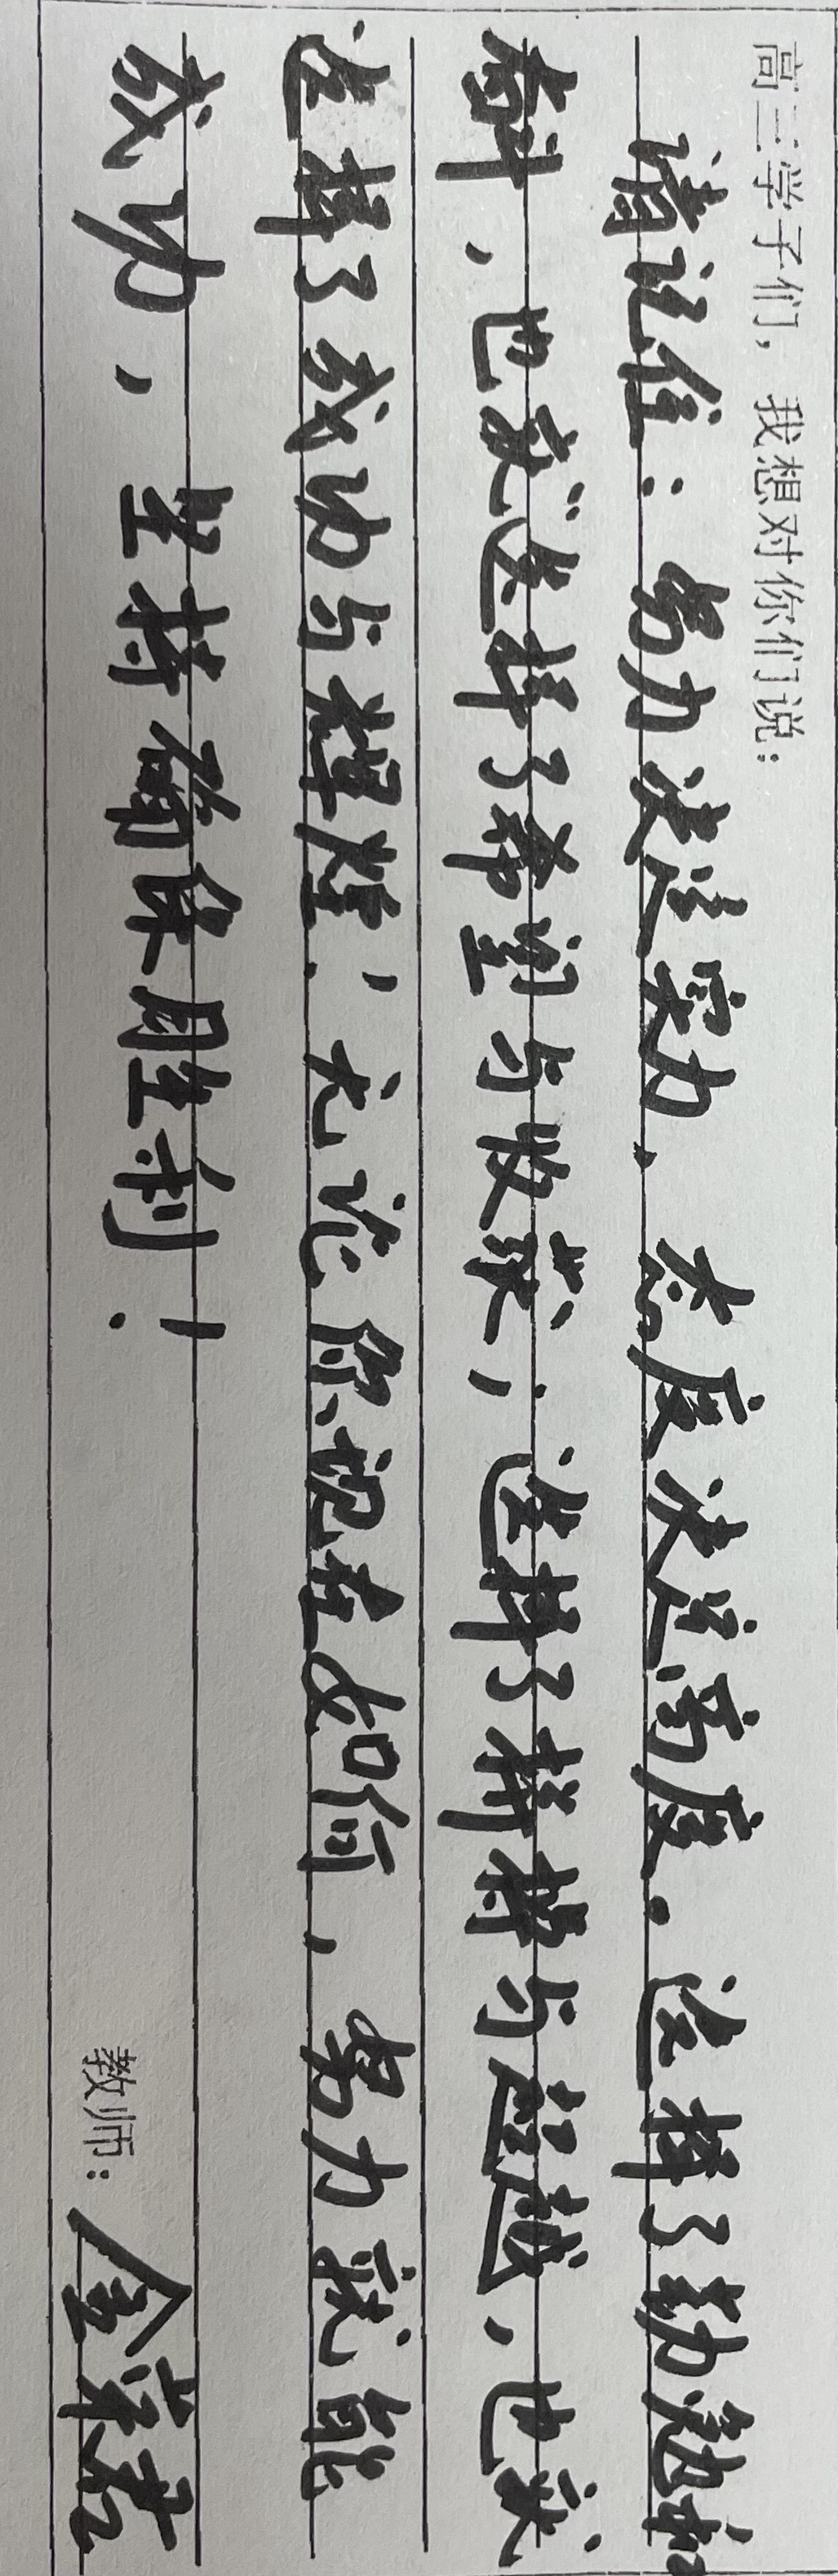 高三学子们，我想对你们说：
请记住：努力决定实力，态度决定高度。选择了勤勉和
奋斗，也就选择了希望与收获；选择了拼搏与超越，也就
选择了成功与辉煌！无论你现在如何，努力就能
成功，坚持确保胜利！
教师：金荣